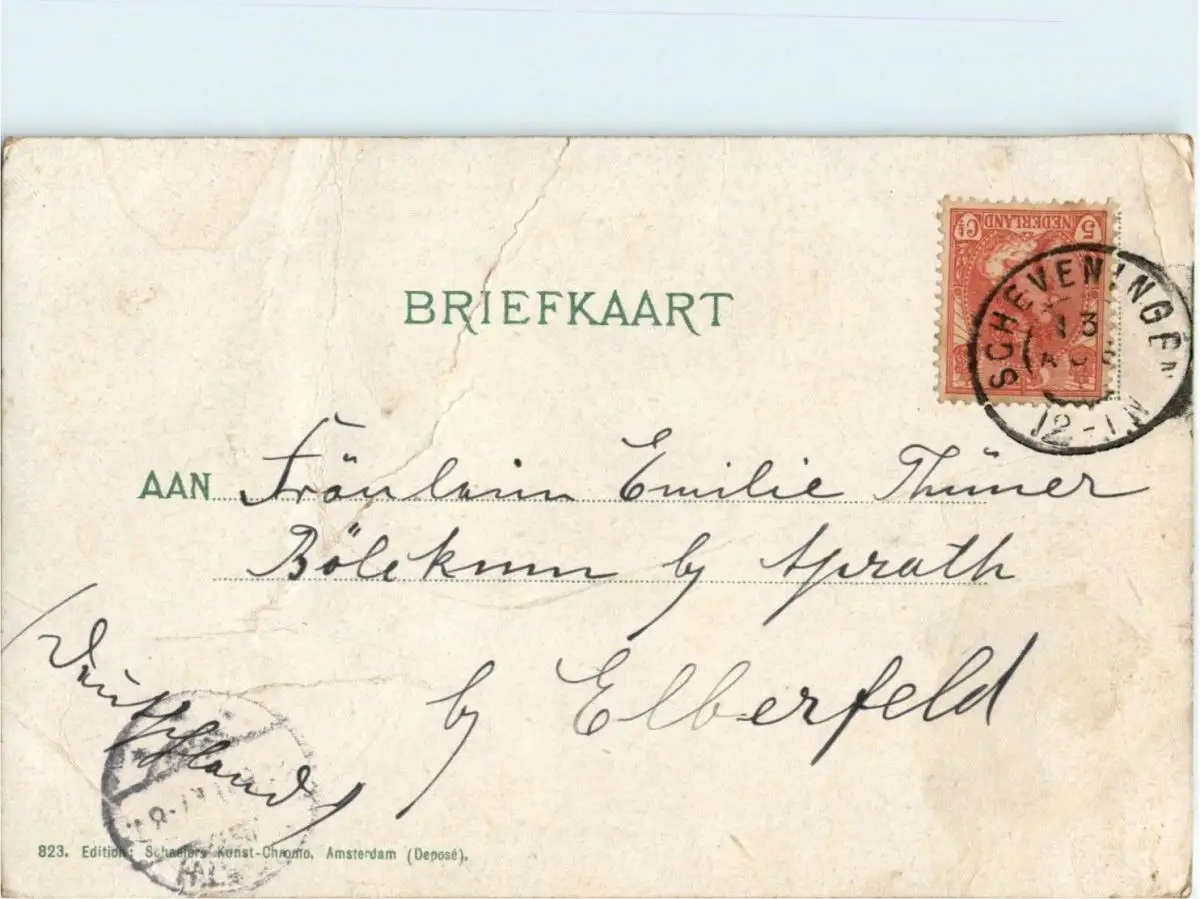 NEDERLAND
5 Ct
SCHEVENINGEN
13
AUG
12-1N
BRIEFKAART
AAN Fräulein Emilie Thüner
by Aprath
by Elberfeld
(Deutschland)
823. Edition: Schaefers Kunst-Chromo, Amsterdam (Deposé).